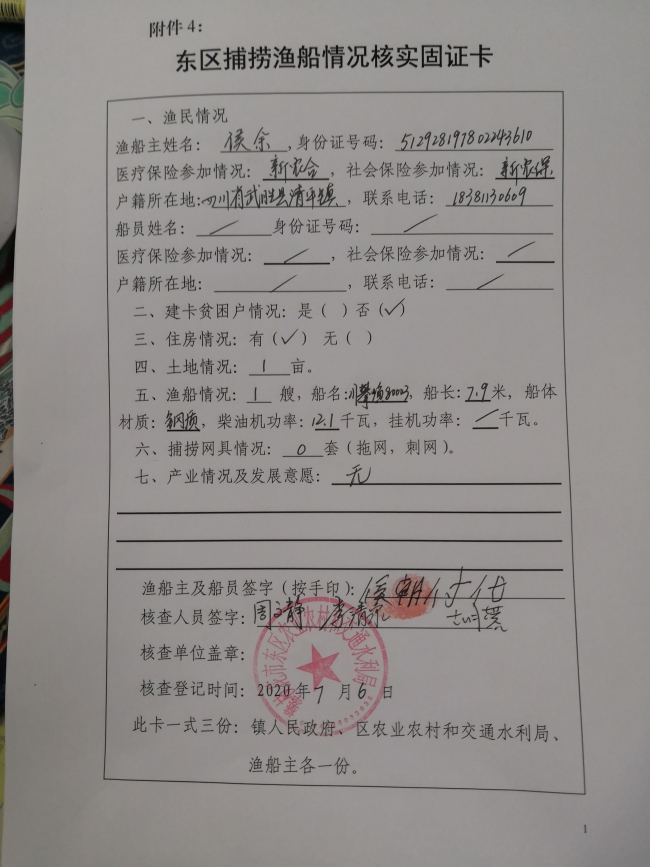 附件4：
东区捕捞渔船情况核实固证卡
一、渔民情况
渔船主姓名： 侯余 ,身份证号码： 512928197802243610
医疗保险参加情况： 新农合 ，社会保险参加情况： 新农保
户籍所在地:四川省武胜县清平镇 ，联系电话： 18381130609
船员姓名： / 身份证号码： /
医疗保险参加情况： / ，社会保险参加情况： /
户籍所在地： / ，联系电话： /
二、建卡贫困户情况：是（ ）否（✓）
三、住房情况：有（✓） 无（ ）
四、土地情况： 1 亩。
五、渔船情况： 1 艘，船名: ，船长：7.9米，船体
材质：钢质，柴油机功率：12.1千瓦，挂机功率： / 千瓦。
六、捕捞网具情况： 0 套（拖网，刺网）。
七、产业情况及发展意愿： 无
渔船主及船员签字（按手印）：侯朝付代
核查人员签字： 周 静 李清
核查单位盖章：
市东区农业农村和交通水利局
核查登记时间：2020年7月6日
此卡一式三份：镇人民政府、区农业农村和交通水利局、
渔船主各一份。
1